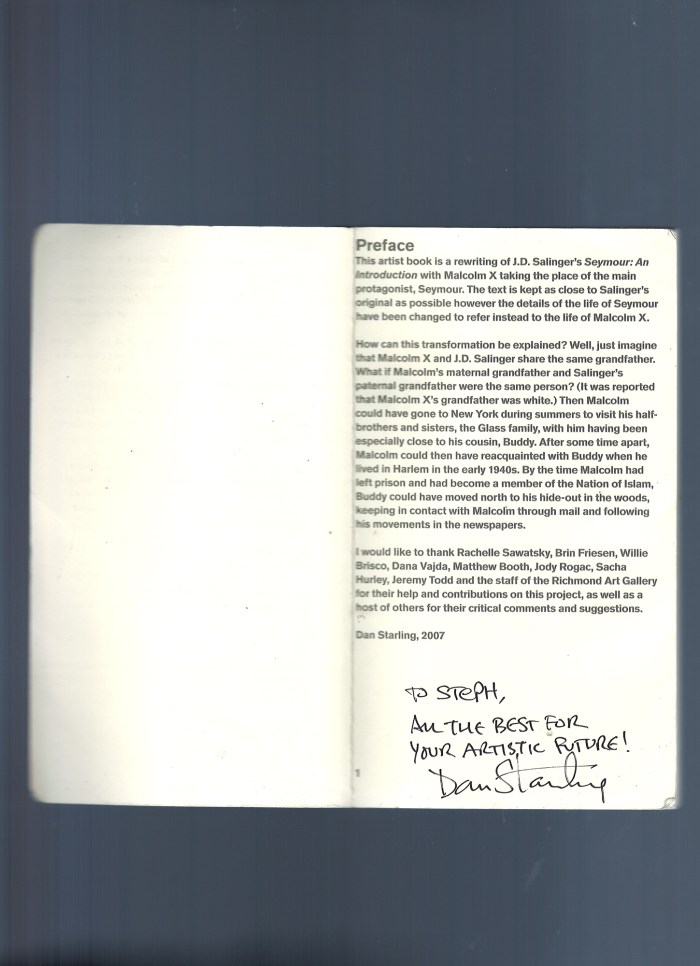 Preface
This artist book is a rewriting of J.D. Salinger's Seymour: An
Introduction with Malcolm X taking the place of the main
protagonist, Seymour. The text is kept as close to Salinger's
original as possible however the details of the life of Seymour
have been changed to refer instead to the life of Malcolm X.
How can this transformation be explained? Well, just imagine
that Malcolm X and J.D. Salinger share the same grandfather.
What if Malcolm's maternal grandfather and Salinger's
paternal grandfather were the same person? (It was reported
that Malcolm X's grandfather was white.) Then Malcolm
could have gone to New York during summers to visit his half-
brothers and sisters, the Glass family, with him having been
especially close to his cousin, Buddy. After some time apart,
Malcolm could then have reacquainted with Buddy when he
lived in Harlem in the early 1940s. By the time Malcolm had
left prison and had become a member of the Nation of Islam,
Buddy could have moved north to his hide-out in the woods,
keeping in contact with Malcolm through mail and following
his movements in the newspapers.
I would like to thank Rachelle Sawatsky, Brin Friesen, Willie
Brisco, Dana Vajda, Matthew Booth, Jody Rogac, Sacha
Hurley, Jeremy Todd and the staff of the Richmond Art Gallery
for their help and contributions on this project, as well as a
host of others for their critical comments and suggestions.
Dan Starling, 2007
TO STEPH,
ALL THE BEST FOR
YOUR ARTISTIC FUTURE!
Dan Starling
1